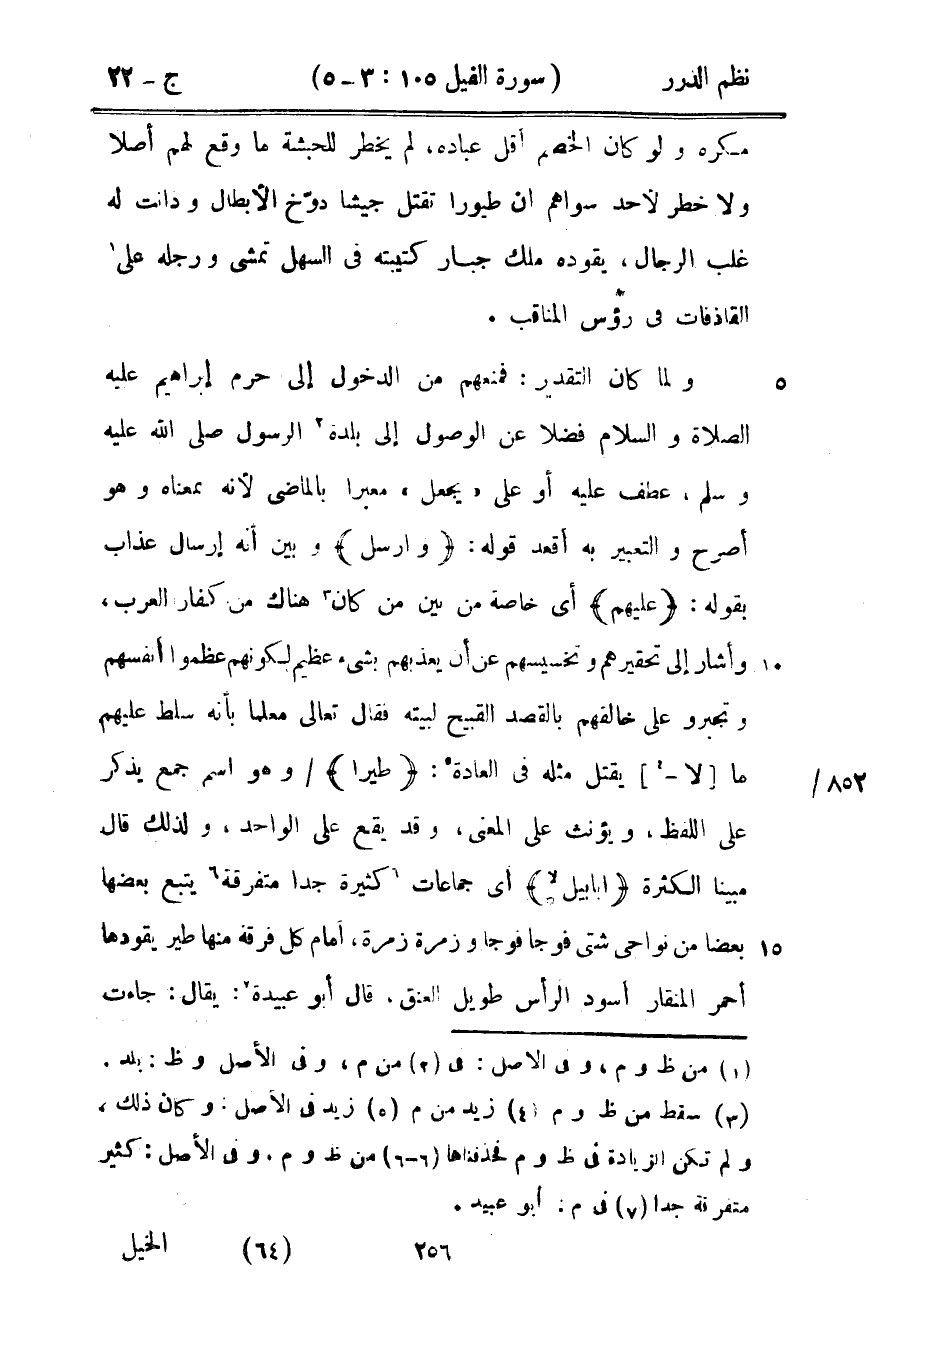 نظم الدرر (سورة الفيل ١٠٥ : ٣ - ٥) ج - ٢٢
مكره و لو كان الخصم أقل عباده، لم يخطر للحبشة ما وقع لهم أصلا
ولا خطر لأحد سواهم ان طيورا تقتل جيشا دوّخ الأبطال و دانت له
غلب الرجال، يقوده ملك جبار كتيبته فى السهل تمشى و رجله على١
القاذفات فى رؤس المناقب .
٥ و لما كان التقدير : فمنعهم من الدخول إلى حرم إبراهيم عليه
الصلاة و السلام فضلا عن الوصول إلى بلدة٢ الرسول صلى الله عليه
و سلم، عطف عليه أو على «يجعل» معبرا بالماضى لأنه بمعناه و هو
أصرح و التعبير به أقعد قوله : ﴿و ارسل﴾ و بين أنه إرسال عذاب
بقوله : ﴿عليهم﴾ أى خاصة من بين من كان٣ هناك من كفار العرب،
١٠ و أشار إلى تحقيرهم و تخسيسهم عن أن يعذبهم بشىء عظيم لكونهم عظموا أنفسهم
و تجبرو على خالقهم بالقصد القبيح لبيته فقال تعالى معلما بأنه سلط عليهم
ما [لا -٤] يقتل مثله فى العادة٥ : ﴿طيرا﴾ / و هو اسم جمع يذكر ٨٥٢/
على اللفظ، و يؤنث على المعنى، و قد يقع على الواحد، و لذلك قال
مبينا الكثرة ﴿ابابيل لا﴾ أى جماعات ٦كثيرة جدا متفرقة٦ يتبع بعضها
١٥ بعضا من نواحى شتى فوجا فوجا و زمرة زمرة، أمام كل فرقة منها طير يقودها
أحمر المنقار أسود الرأس طويل العنق. قال أبو عبيدة٧ : يقال : جاءت
(١) من ظ و م، و فى الاصل : فى (٢) من م، و فى الأصل و ظ : بلد .
(٣) سقط من ظ و م (٤) زيد من م (٥) زيد فى الأصل : و كان ذلك،
و لم تكن الزيادة فى ظ و م فحذفناها (٦-٦) من ظ و م، و فى الأصل : كثير
متفرقة جدا (٧) فى م : أبو عبيد .
٢٥٦ (٦٤) الخيل